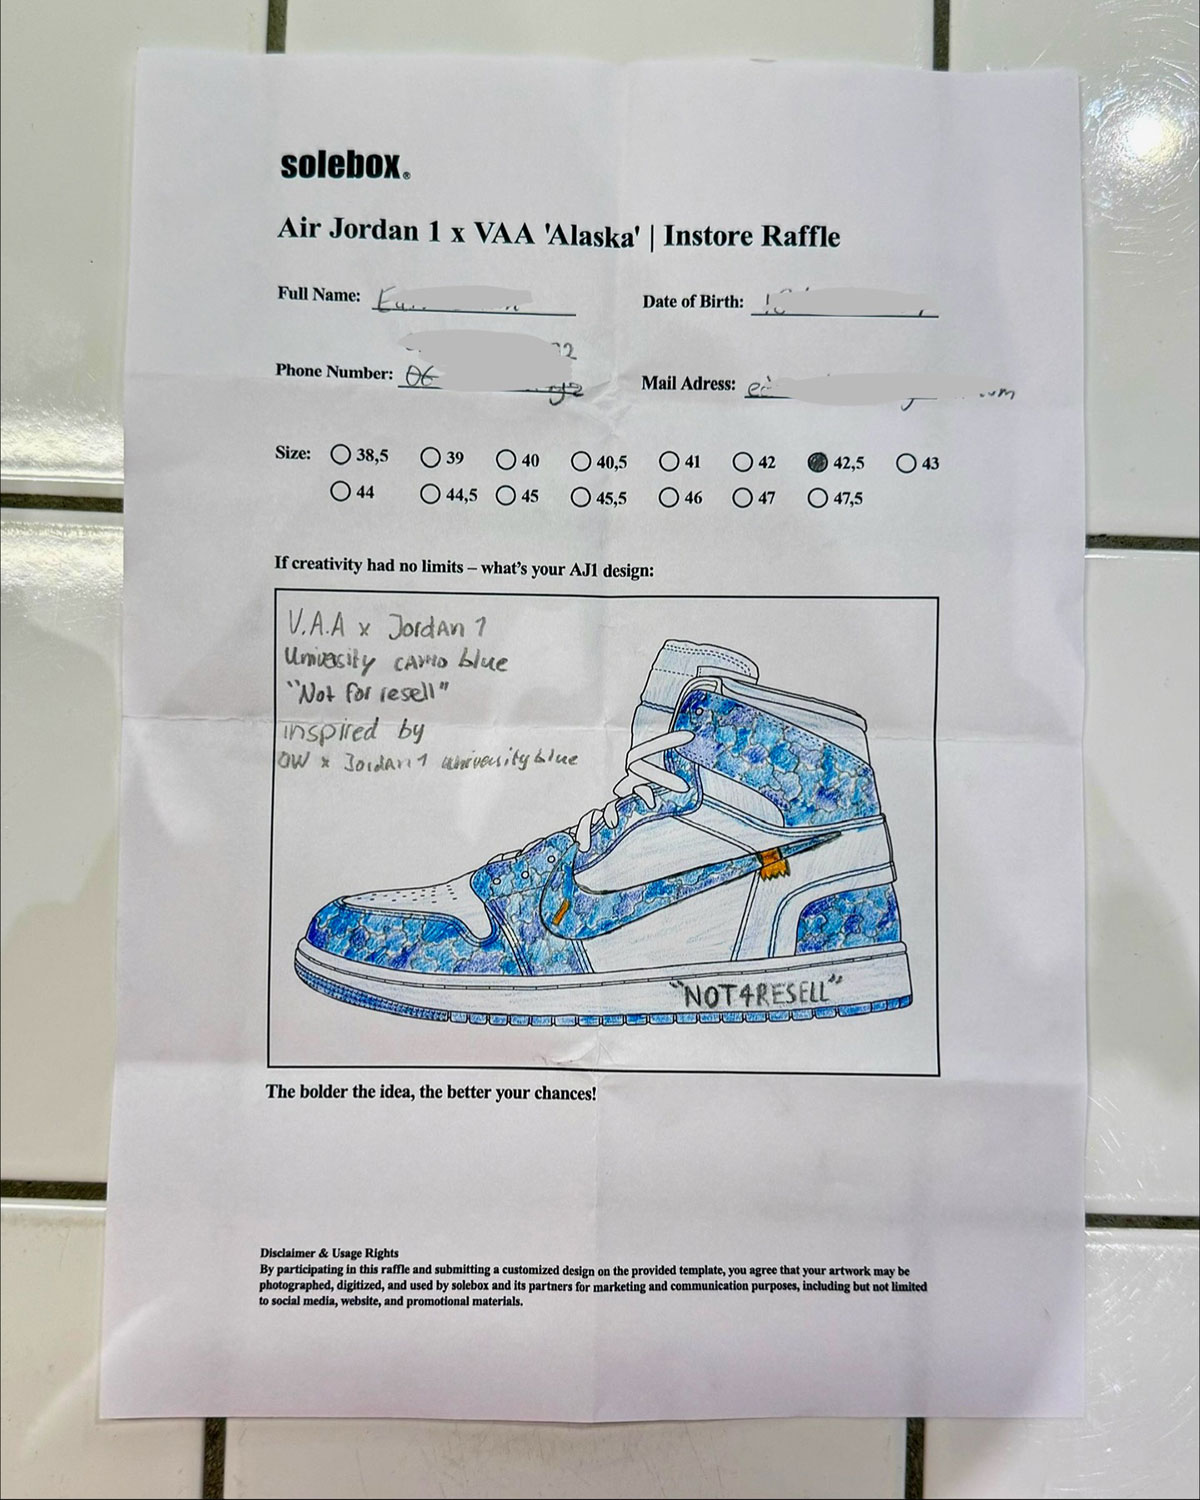 solebox®
Air Jordan 1 x VAA 'Alaska' | Instore Raffle
Full Name:
Date of Birth:
Phone Number: 06
Mail Adress:
Size: 38,5 39 40 40,5 41 42 42,5 43
44 44,5 45 45,5 46 47 47,5
If creativity had no limits – what's your AJ1 design:
V.A.A x Jordan 1
University CAMO blue
"Not for resell"
inspired by
OW x Jordan 1 university blue
"NOT4RESELL"
The bolder the idea, the better your chances!
Disclaimer & Usage Rights
By participating in this raffle and submitting a customized design on the provided template, you agree that your artwork may be
photographed, digitized, and used by solebox and its partners for marketing and communication purposes, including but not limited
to social media, website, and promotional materials.